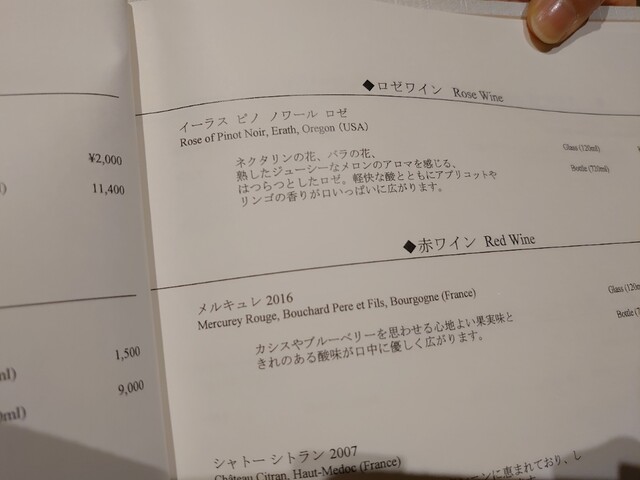 ¥2,000
11,400
1,500
9,000
◆ロゼワイン Rose Wine
イーラス ピノ ノワール ロゼ
Rose of Pinot Noir, Erath, Oregon (USA)
Glass (120ml)
Bottle (720ml)
ネクタリンの花、バラの花、
熟したジューシーなメロンのアロマを感じる、
はつらつとしたロゼ。軽快な酸とともにアプリコットや
リンゴの香りが口いっぱいに広がります。
◆赤ワイン Red Wine
メルキュレ 2016
Mercurey Rouge, Bouchard Pere et Fils, Bourgogne (France)
Glass (120m
Bottle (7
カシスやブルーベリーを思わせる心地よい果実味と
きれのある酸味が口中に優しく広がります。
シャトー シトラン 2007
Château Citran, Haut-Medoc (France)
に恵まれており、し